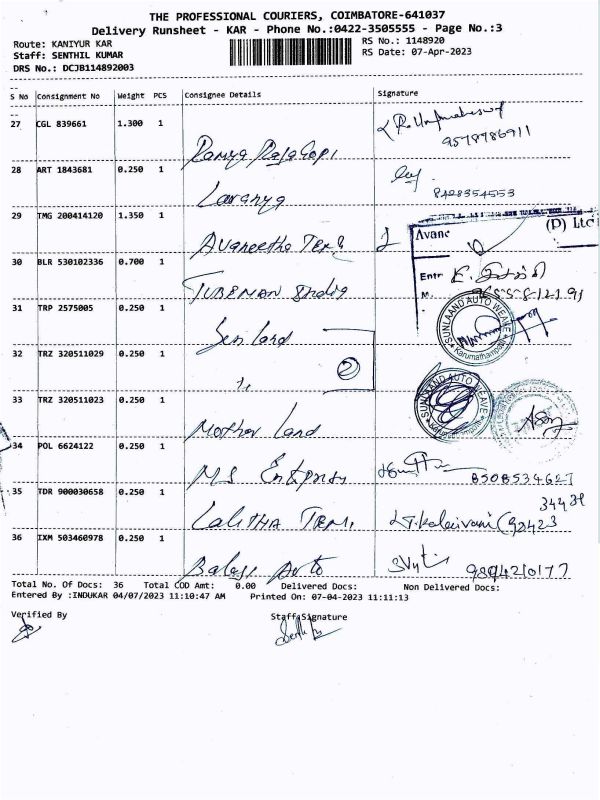 THE PROFESSIONAL COURIERS, COIMBATORE-641037
Delivery Runsheet - KAR - Phone No.:0422-3505555 - Page No.:3
Route: KANIYUR KAR
RS No.: 1148920
Staff: SENTHIL KUMAR
RS Date: 07-Apr-2023
DRS No.: DCJB114892003
S No Consignment No Weight PCS Consignee Details Signature
27 CGL 839661 1.300 1
9578786911
Ramya Rajagopi
28 ART 1843681 0.250 1
8428354553
Lavanya
29 TMG 200414120 1.350 1
(P) Ltd
Avaneetha Tex
30 BLR 530102336 0.700 1
Entr
M.
TUBEMAN India
31 TRP 2575005 0.250 1
SUNLAAND AUTO WEAVE
Karumathampatti
Sun land
32 TRZ 320511029 0.250 1
2
33 TRZ 320511023 0.250 1
SUNLAAND AUTO WEAVE
Mother Land
34 POL 6624122 0.250 1
8508534627
MS
35 TDR 900030658 0.250 1
34431
LALITHA
92423
36 IXM 503460978 0.250 1
9894210177
Balaji Auto
Total No. Of Docs: 36 Total COD Amt: 0.00 Delivered Docs: Non Delivered Docs:
Entered By :INDUKAR 04/07/2023 11:10:47 AM Printed On: 07-04-2023 11:11:13
Verified By Staff Signature